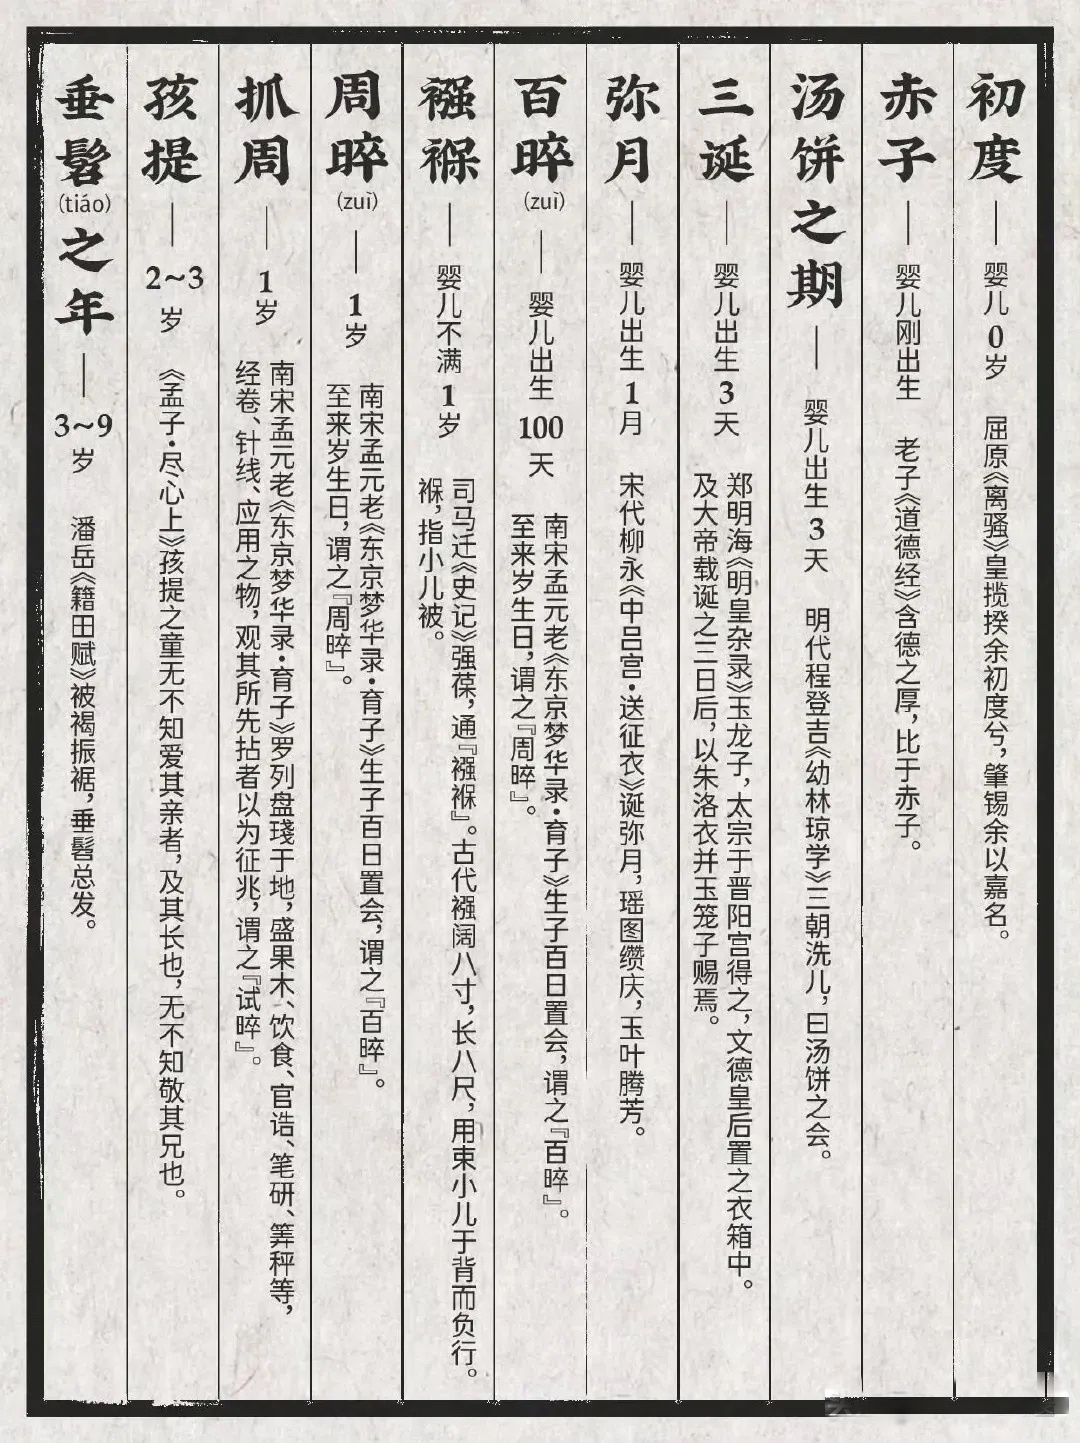 初度——婴儿0岁 屈原《离骚》皇揽揆余初度兮，肇锡余以嘉名。
赤子——婴儿刚出生 老子《道德经》含德之厚，比于赤子。
汤饼之期——婴儿出生3天 明代程登吉《幼林琼学》三朝洗儿，曰汤饼之会。
三诞——婴儿出生3天
郑明海《明皇杂录》玉龙子，太宗于晋阳宫得之，文德皇后置之衣箱中。
及大帝载诞之三日后，以朱洛衣并玉笼子赐焉。
弥月——婴儿出生1月 宋代柳永《中吕宫·送征衣》诞弥月，瑶图缵庆，玉叶腾芳。
百晬(zuì)——婴儿出生100天
南宋孟元老《东京梦华录·育子》生子百日置会，谓之『百晬』。
至来岁生日，谓之『周晬』。
襁褓——婴儿不满1岁
司马迁《史记》强葆，通『襁褓』。古代襁阔八寸，长八尺，用束小儿于背而负行。
褓，指小儿被。
周晬(zuì)——1岁
南宋孟元老《东京梦华录·育子》生子百日置会，谓之『百晬』。
至来岁生日，谓之『周晬』。
抓周——1岁
南宋孟元老《东京梦华录·育子》罗列盘琖于地，盛果木、饮食、官诰、笔研、筭秤等，
经卷、针线、应用之物，观其所先拈者以为征兆，谓之『试晬』。
孩提——2~3岁 《孟子·尽心上》孩提之童无不知爱其亲者，及其长也，无不知敬其兄也。
垂髫(tiáo)之年——3~9岁 潘岳《籍田赋》被褐振裾，垂髫总发。